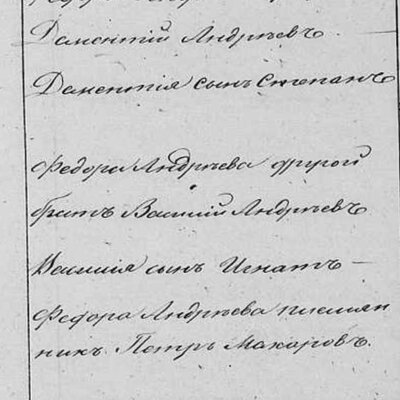 Дементій Андрѣевъ.
Дементія сынъ Степанъ
Федора Андрѣева другой
братъ Василій Андрѣевъ
Василія сынъ Игнатъ —
Федора Андрѣева племян
никъ Петръ Макаровъ.